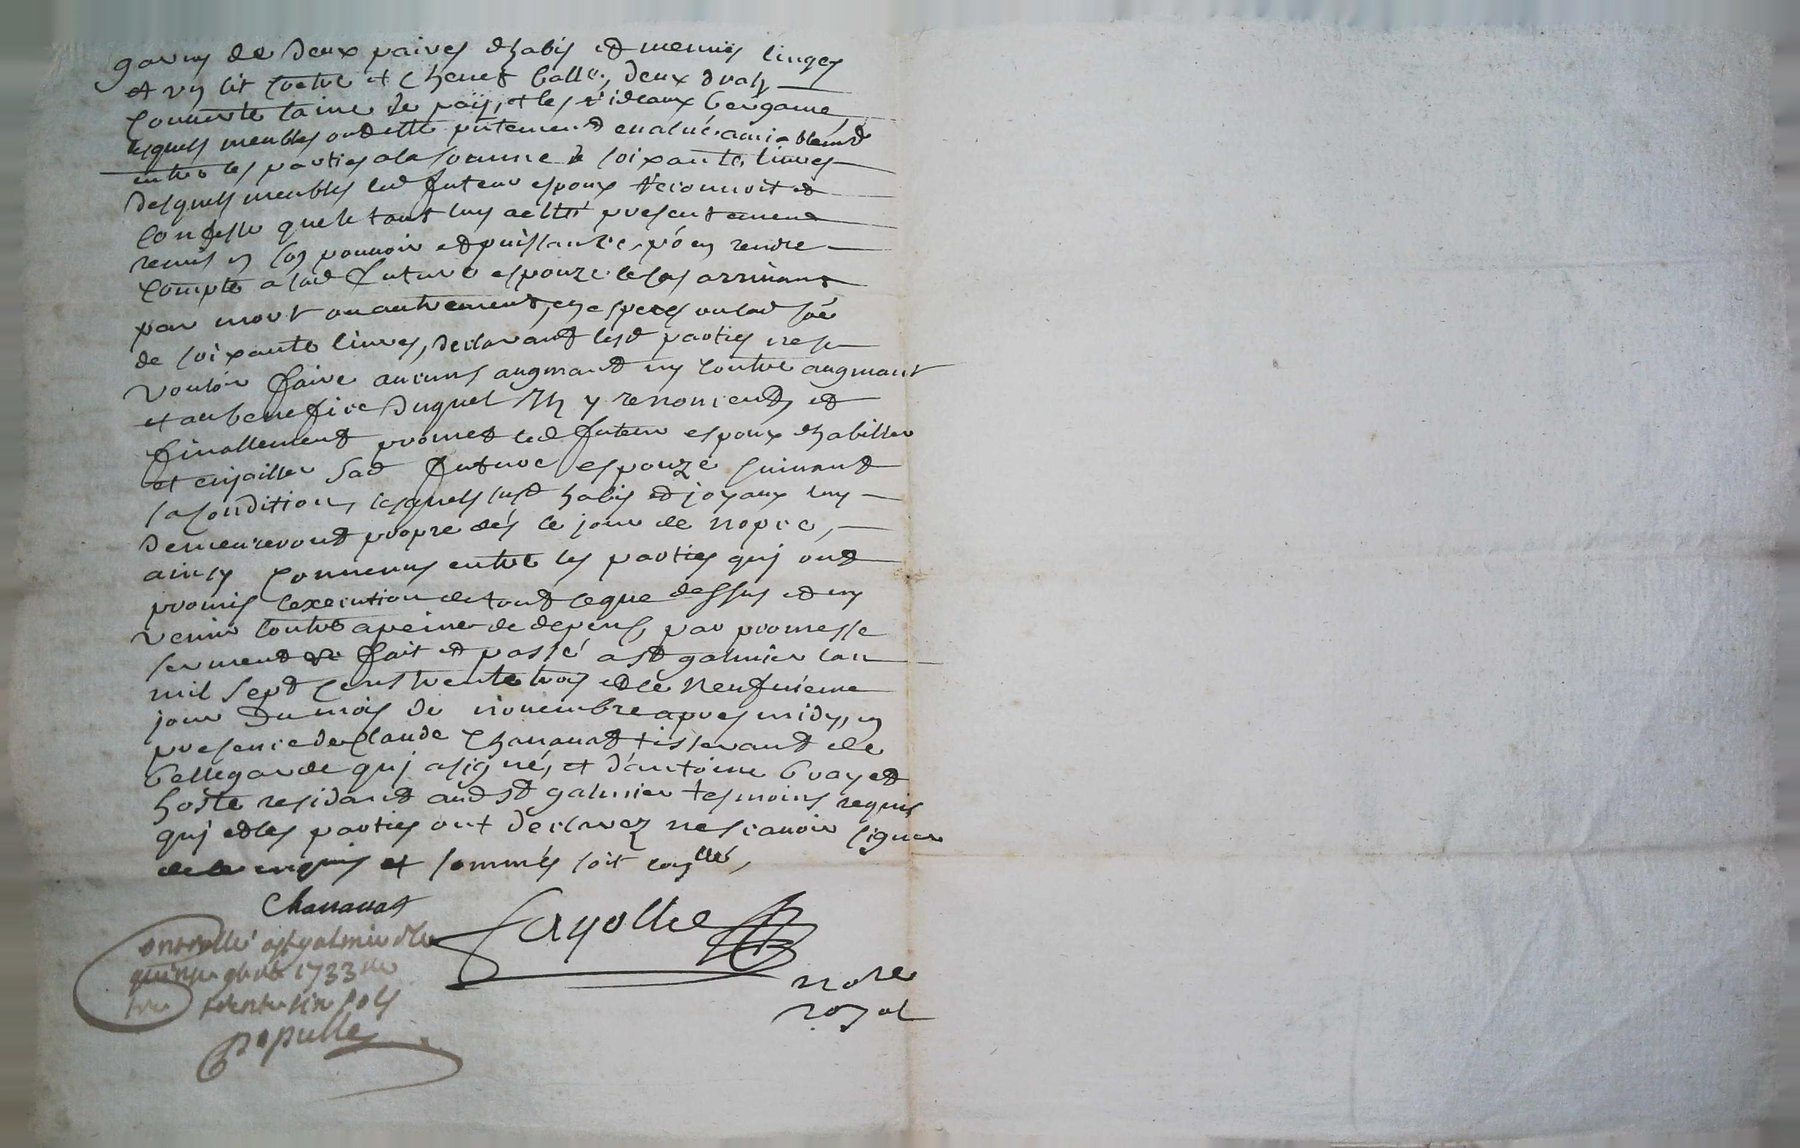 garny de deux paires dhabis et menus linges
et un lit coetre et chevet balle, deux draps
couverte laine de païs, et les rideaux bergame,
lesquels meubles ont esté pntement evalués amiablemt
entre les parties a la somme de soixante livres
desquels meubles led futeur espoux reconnoit et
confesse que le tout luy a esté presentement
remis en son pouvoir et puissance, po en rendre
compte a lad future espouze le cas arrivant
par mort ou autrement, en especes ou lad soe
de soixante livres, declarant lesd parties ne se
vouloir faire aucuns augmant ny contre augmant
et au benefice duquel ils y renoncent, et
finallement promet led futeur espoux dhabiller
et enjoailler sad future espouze suivant
sa condition, lesquels susd habis et joyaux luy
demeureront propre dés le jour de nopce,
ainsy convenus entre les parties quj ont
promis lexecution de tout ce que dessus et ny
venir contre a peine de depens, par promesse
serment fait et passé a st galmier lan
mil sept cens trente trois et le neufvieme
jour du mois de novembre apres midy, en
presence de Claude Chavanat tisserant de
bellegarde quj a signé, et d'antoine brayet
hoste residant aud st galmier tesmoins requis
quj et les parties ont declarez ne scavoir signer
de ce enquis et sommés soit conllé,
Chavanat
Fayolle
ontrollé a st galmier le
quinze 9bre 1733
trente six sols
notre
royal
populle